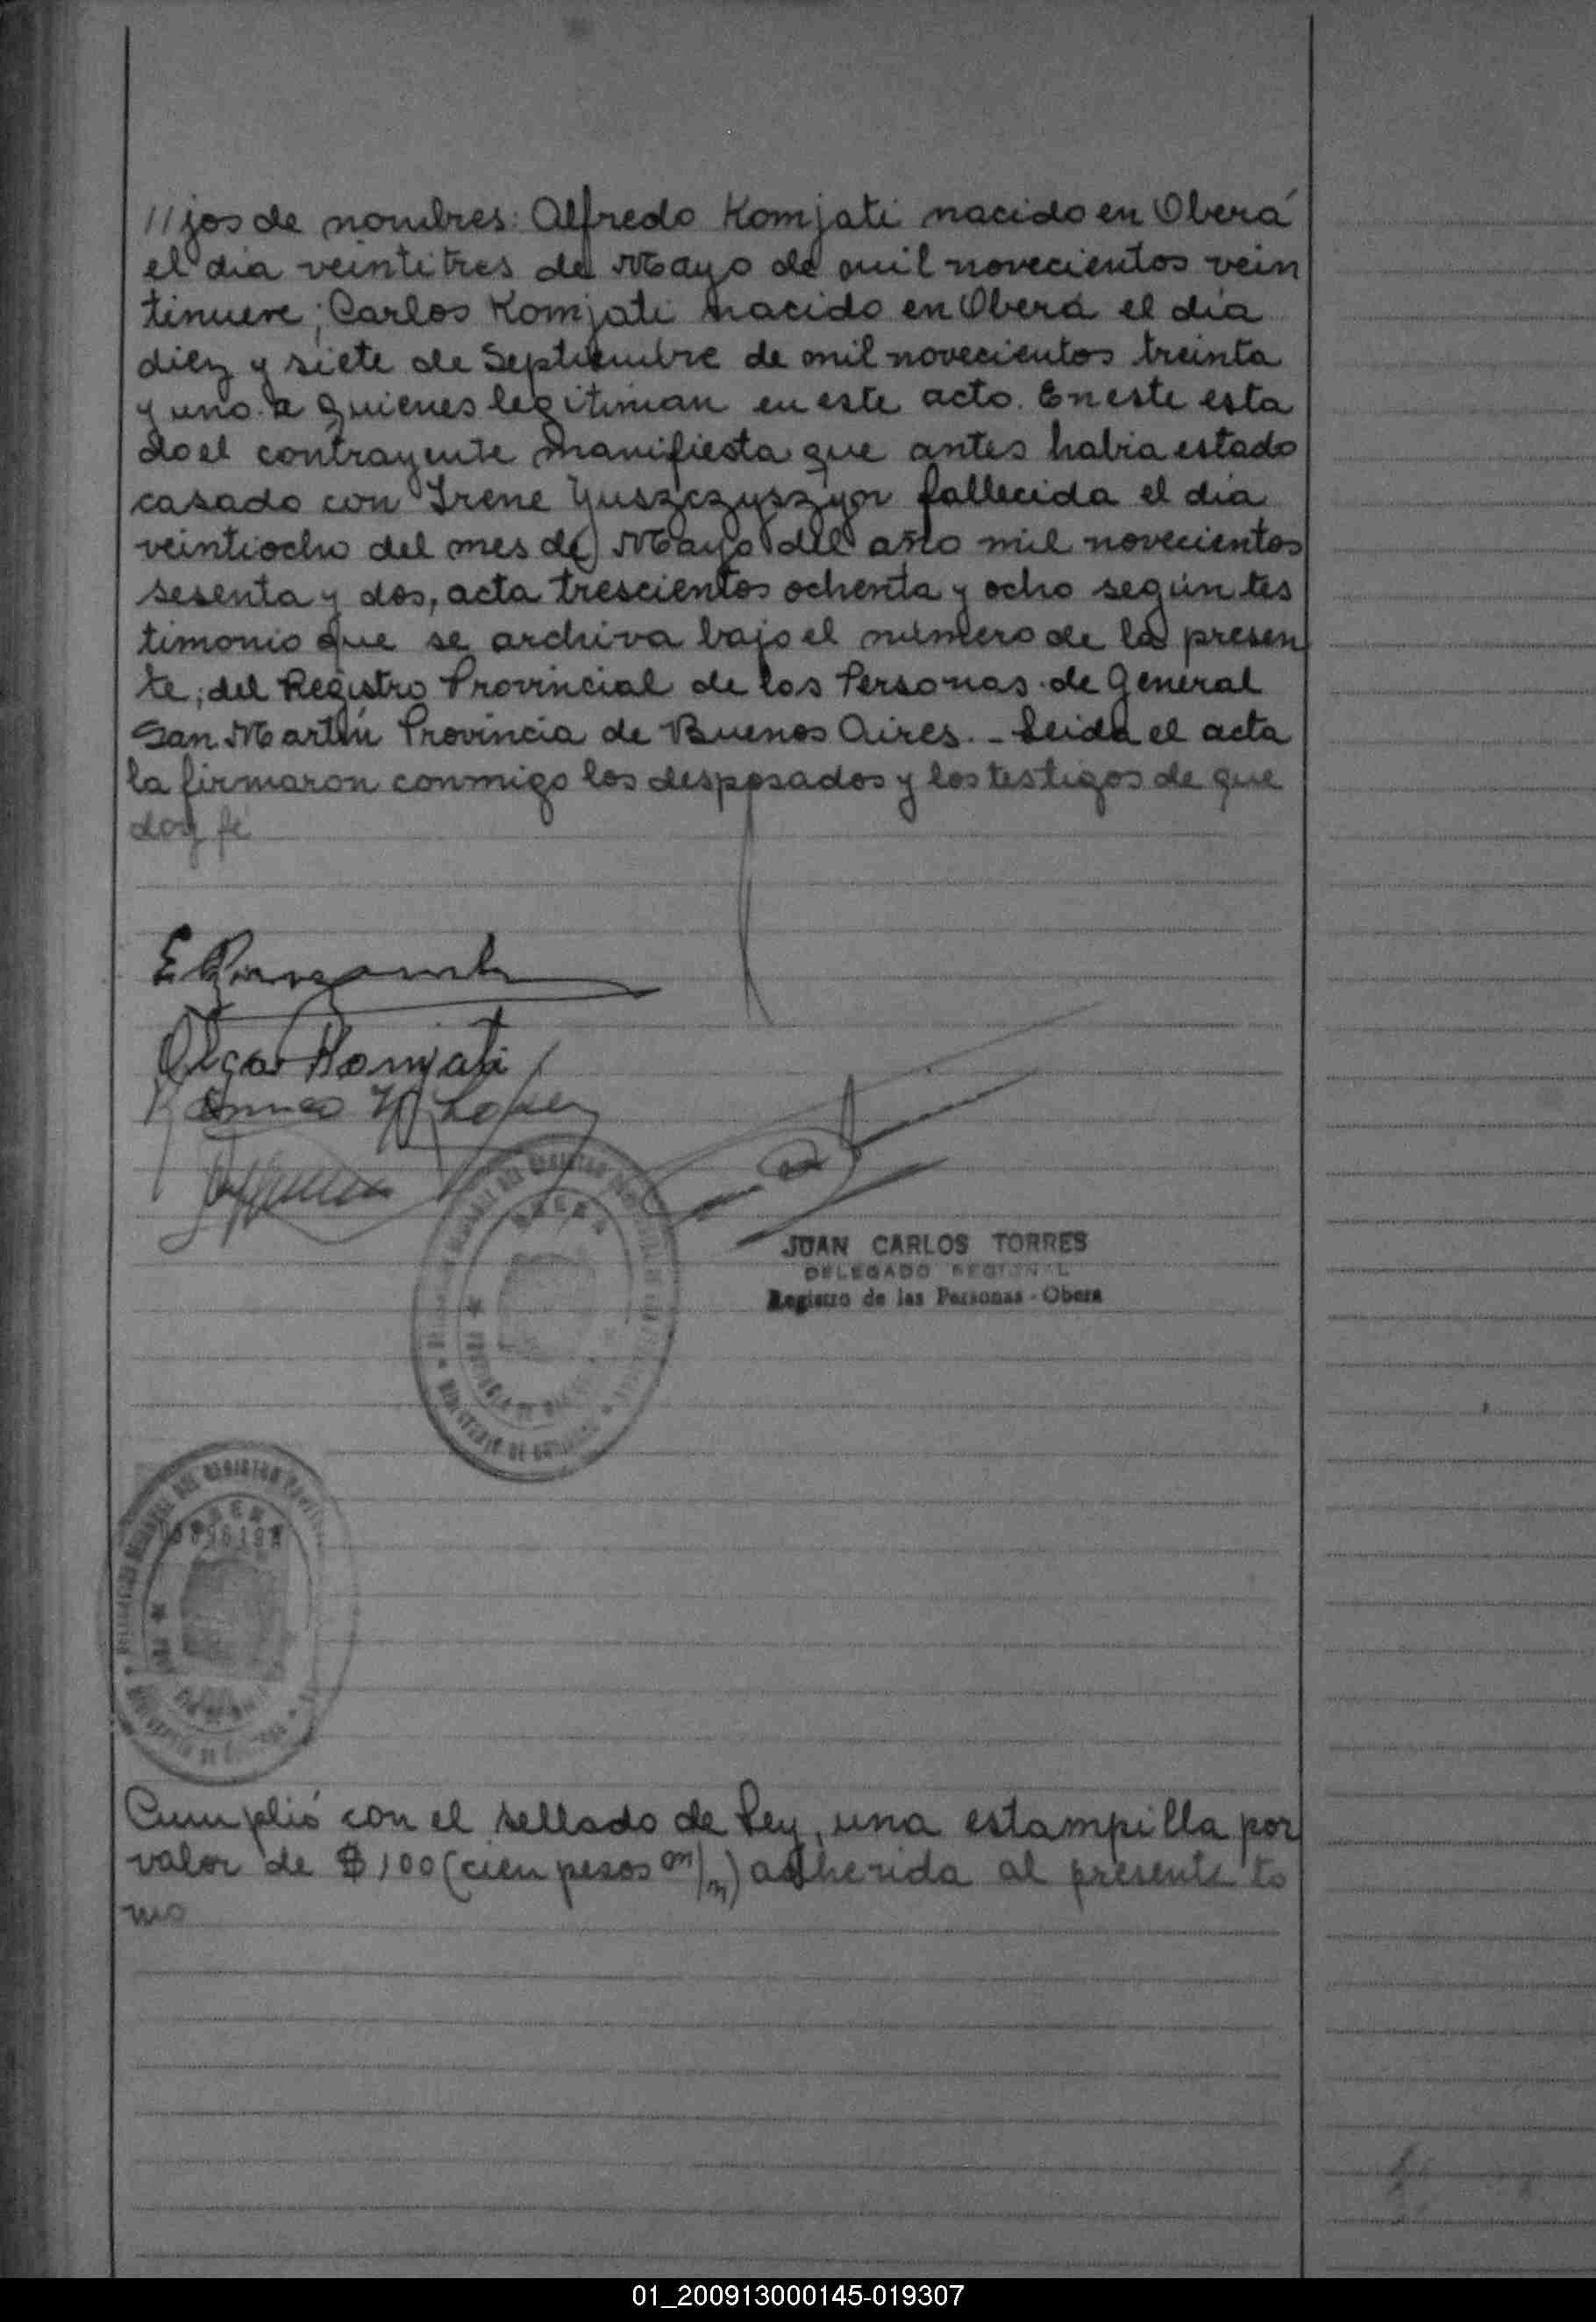 //jos de nombres: Alfredo Komjati nacido en Oberá
el dia veintitres de Mayo de mil novecientos vein
tinueve; Carlos Komjati nacido en Oberá el día
diez y siete de Septiembre de mil novecientos treinta
y uno. a quienes legitiman en este acto. En este esta
do el contrayente manifiesta que antes habia estado
casado con Irene Yuszczyszyn fallecida el día
veintiocho del mes de Mayo del año mil novecientos
sesenta y dos, acta trescientos ochenta y ocho según tes
timonio que se archiva bajo el número de la presen
te; del Registro Provincial de las Personas de General
San Martín Provincia de Buenos Aires. - Leida el acta
la firmaron conmigo los desposados y los testigos de que
doy fe
Olga Komjati
JUAN CARLOS TORRES
DELEGADO REGIONAL
Registro de las Personas - Obera
Cumplió con el sellado de Ley, una estampilla por
valor de $ 100 (cien pesos m/n) adherida al presente to
mo
01_200913000145-019307